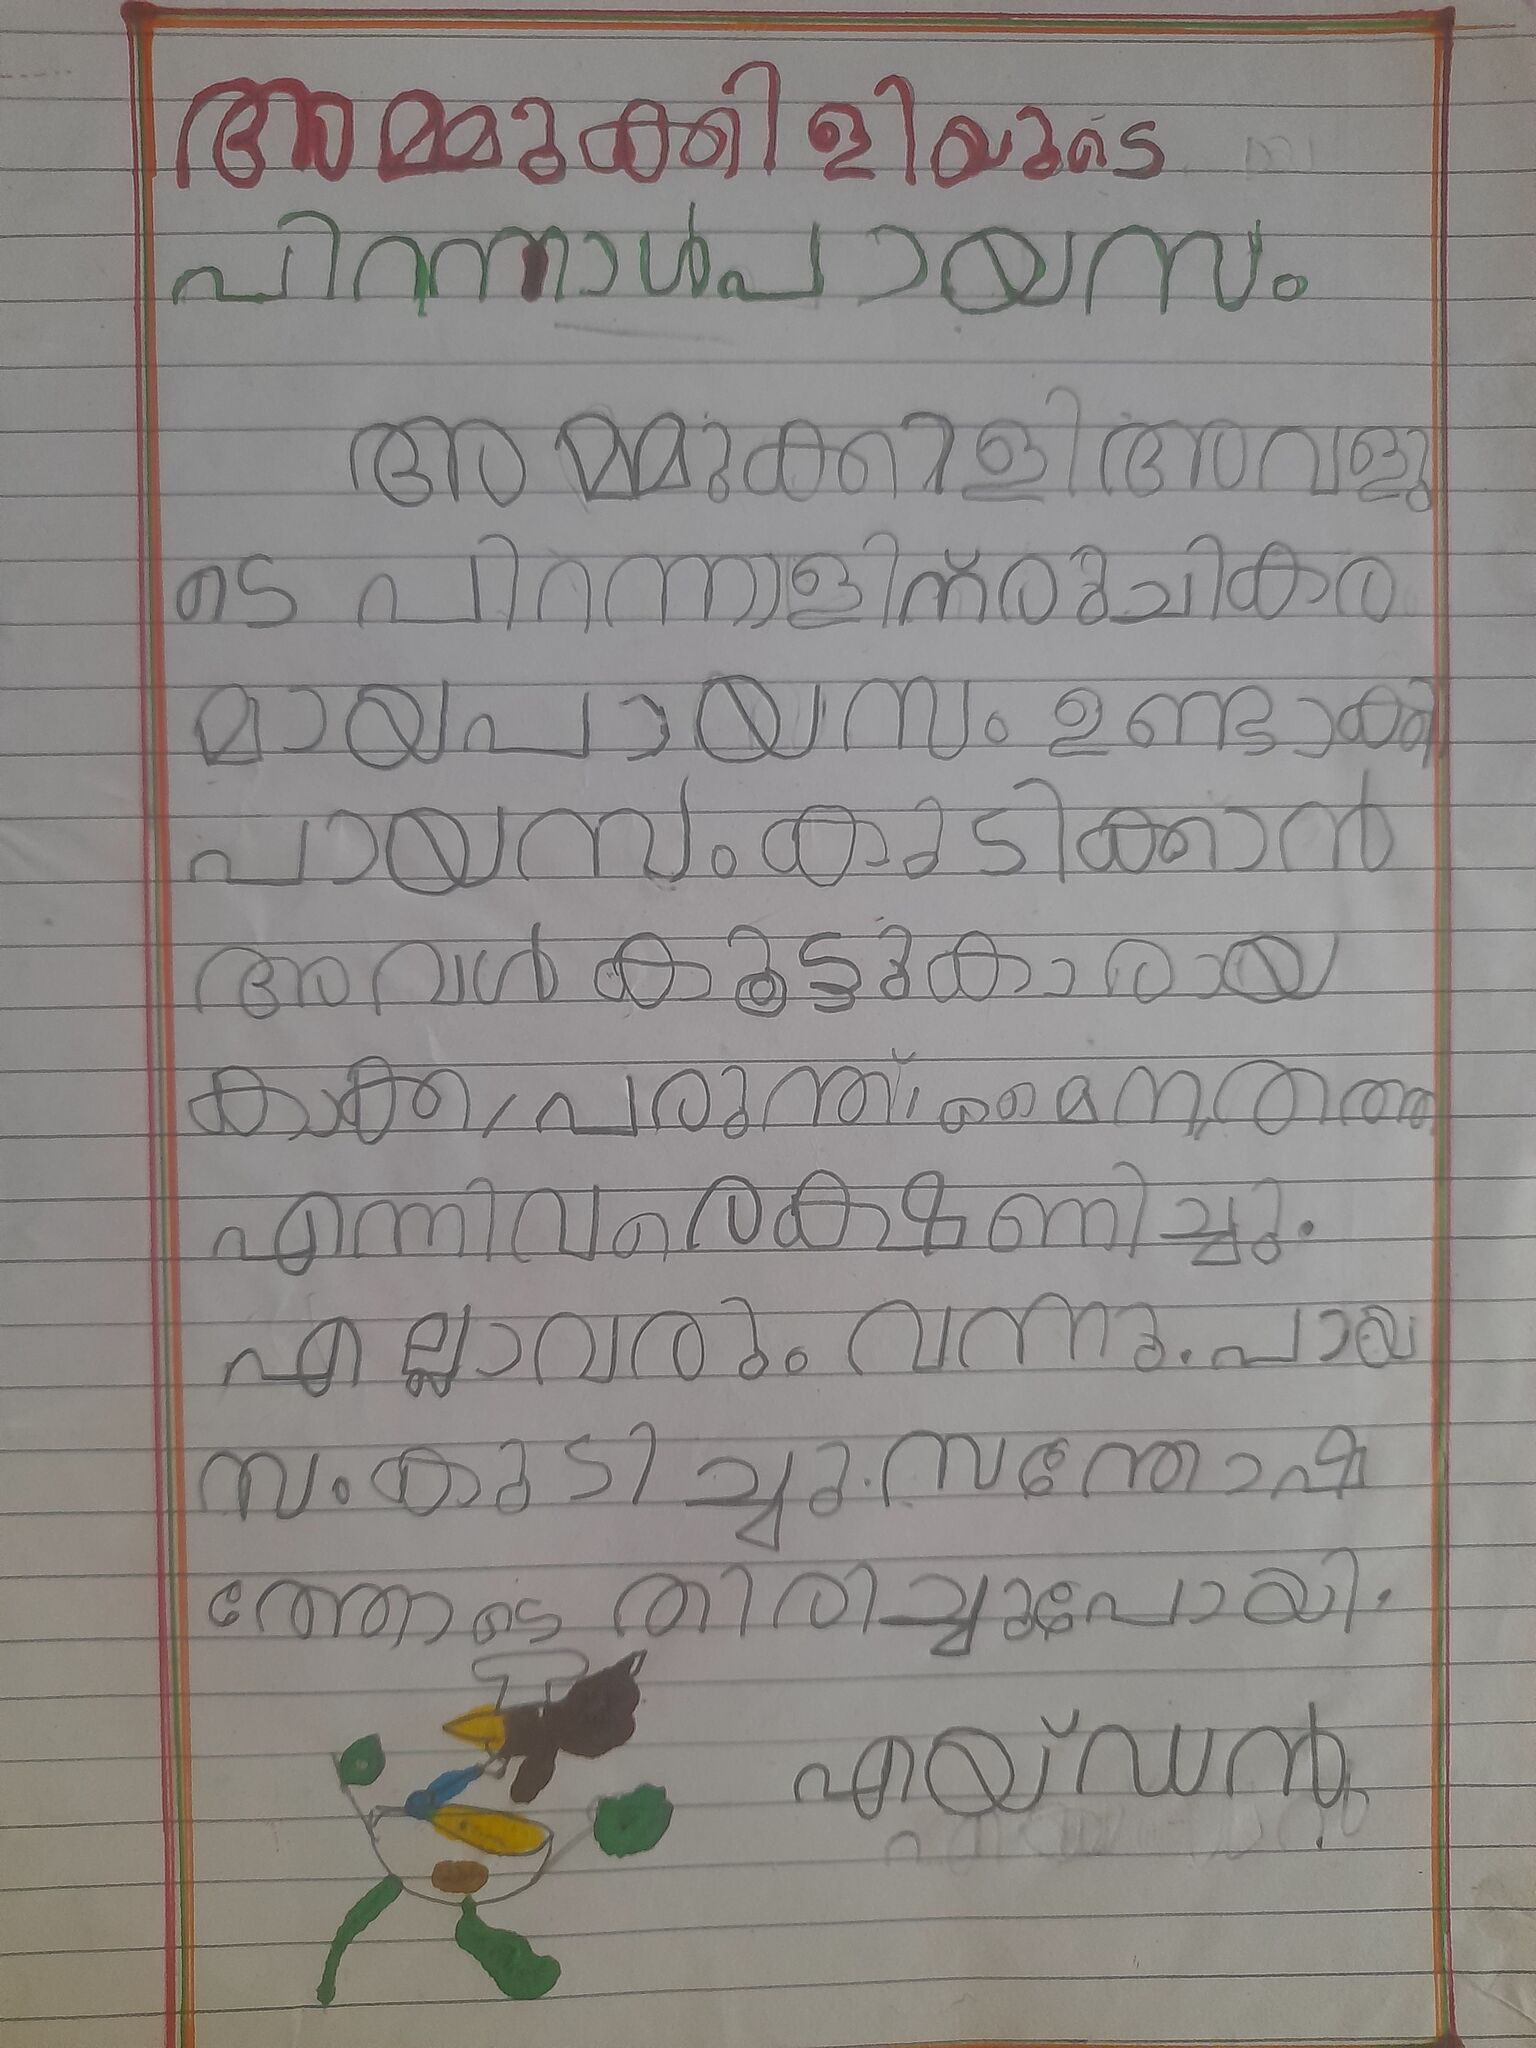 അമ്മുക്കിളിയുടെ
പിറന്നാൾപായസം
അമ്മുക്കിളി അവളു
ടെ പിറന്നാളിന് രുചികര
മായപായസം ഉണ്ടാക്കി
പായസം കുടിക്കാൻ
അവൾ കൂട്ടുകാരായ
കാക്ക, പരുന്ത്, മൈന, തത്ത
എന്നിവരെ ക്ഷണിച്ചു.
എല്ലാവരും വന്നു. പായ
സം കുടിച്ചു. സന്തോഷ
ത്തോടെ തിരിച്ചുപോയി.
എയ്ഡൻ